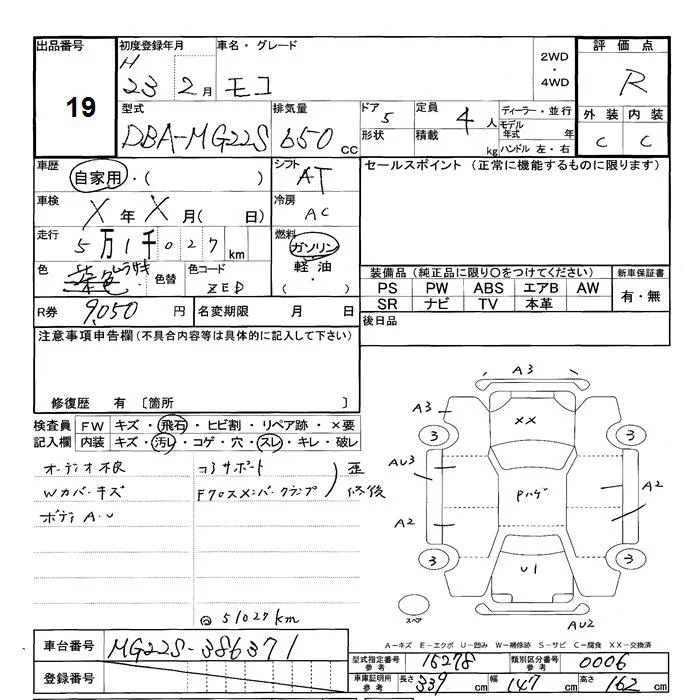 出品番号 初度登録年月 車名・グレード 2WD・4WD 評価点
19 H 23 2月 モコ R
型式 排気量 ドア 5 定員 4人 ディーラー・並行 外装 内装
DBA-MG22S 650 cc 形状 積載 kg モデル年式 年 ハンドル 左・右 C C
車歴 自家用・( ) シフト AT セールスポイント (正常に機能するものに限ります)
車検 X年X月( 日) 冷房 AC
走行 5万1千027 km 燃料 ガソリン 軽油・( )
色 茶色 色替 色コード ZED 装備品(純正品に限り○をつけてください) 新車保証書
PS PW ABS エアB AW 有・無
SR ナビ TV 本革
R券 9,050円 名変期限 月 日 後日品
注意事項申告欄(不具合内容等は具体的に記入して下さい)
修復歴 有 〔箇所 〕
検査員 FW キズ・飛石・ヒビ割・リペア跡・×要
記入欄 内装 キズ・汚レ・コゲ・穴・スレ・キレ・破レ
オーディオ不良 コアサポート 歪
Wカバーキズ Fクロスメンバークランプ 修後
ボディA・U
@ 51027km
A3
A3 XX
3 3
AU3 Pハゲ A2
A2
3 U1 3
スペア AU2
A-キズ E-エクボ U-凹み W-補修跡 S-サビ C-腐食 XX-交換済
車台番号 MG22S-386371
型式指定番号 参考 15278 類別区分番号 参考 0006
登録番号
車庫証明用 参考 長さ 339 cm 幅 147 cm 高さ 162 cm